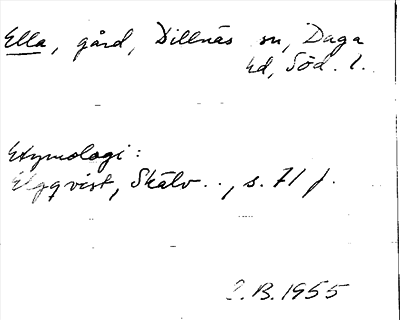 Ella, gård, Dillnäs sn, Daga
hd, Söd. l.
Etymologi:
Elgqvist, Skälv.., s. 71 f.
B. 1955